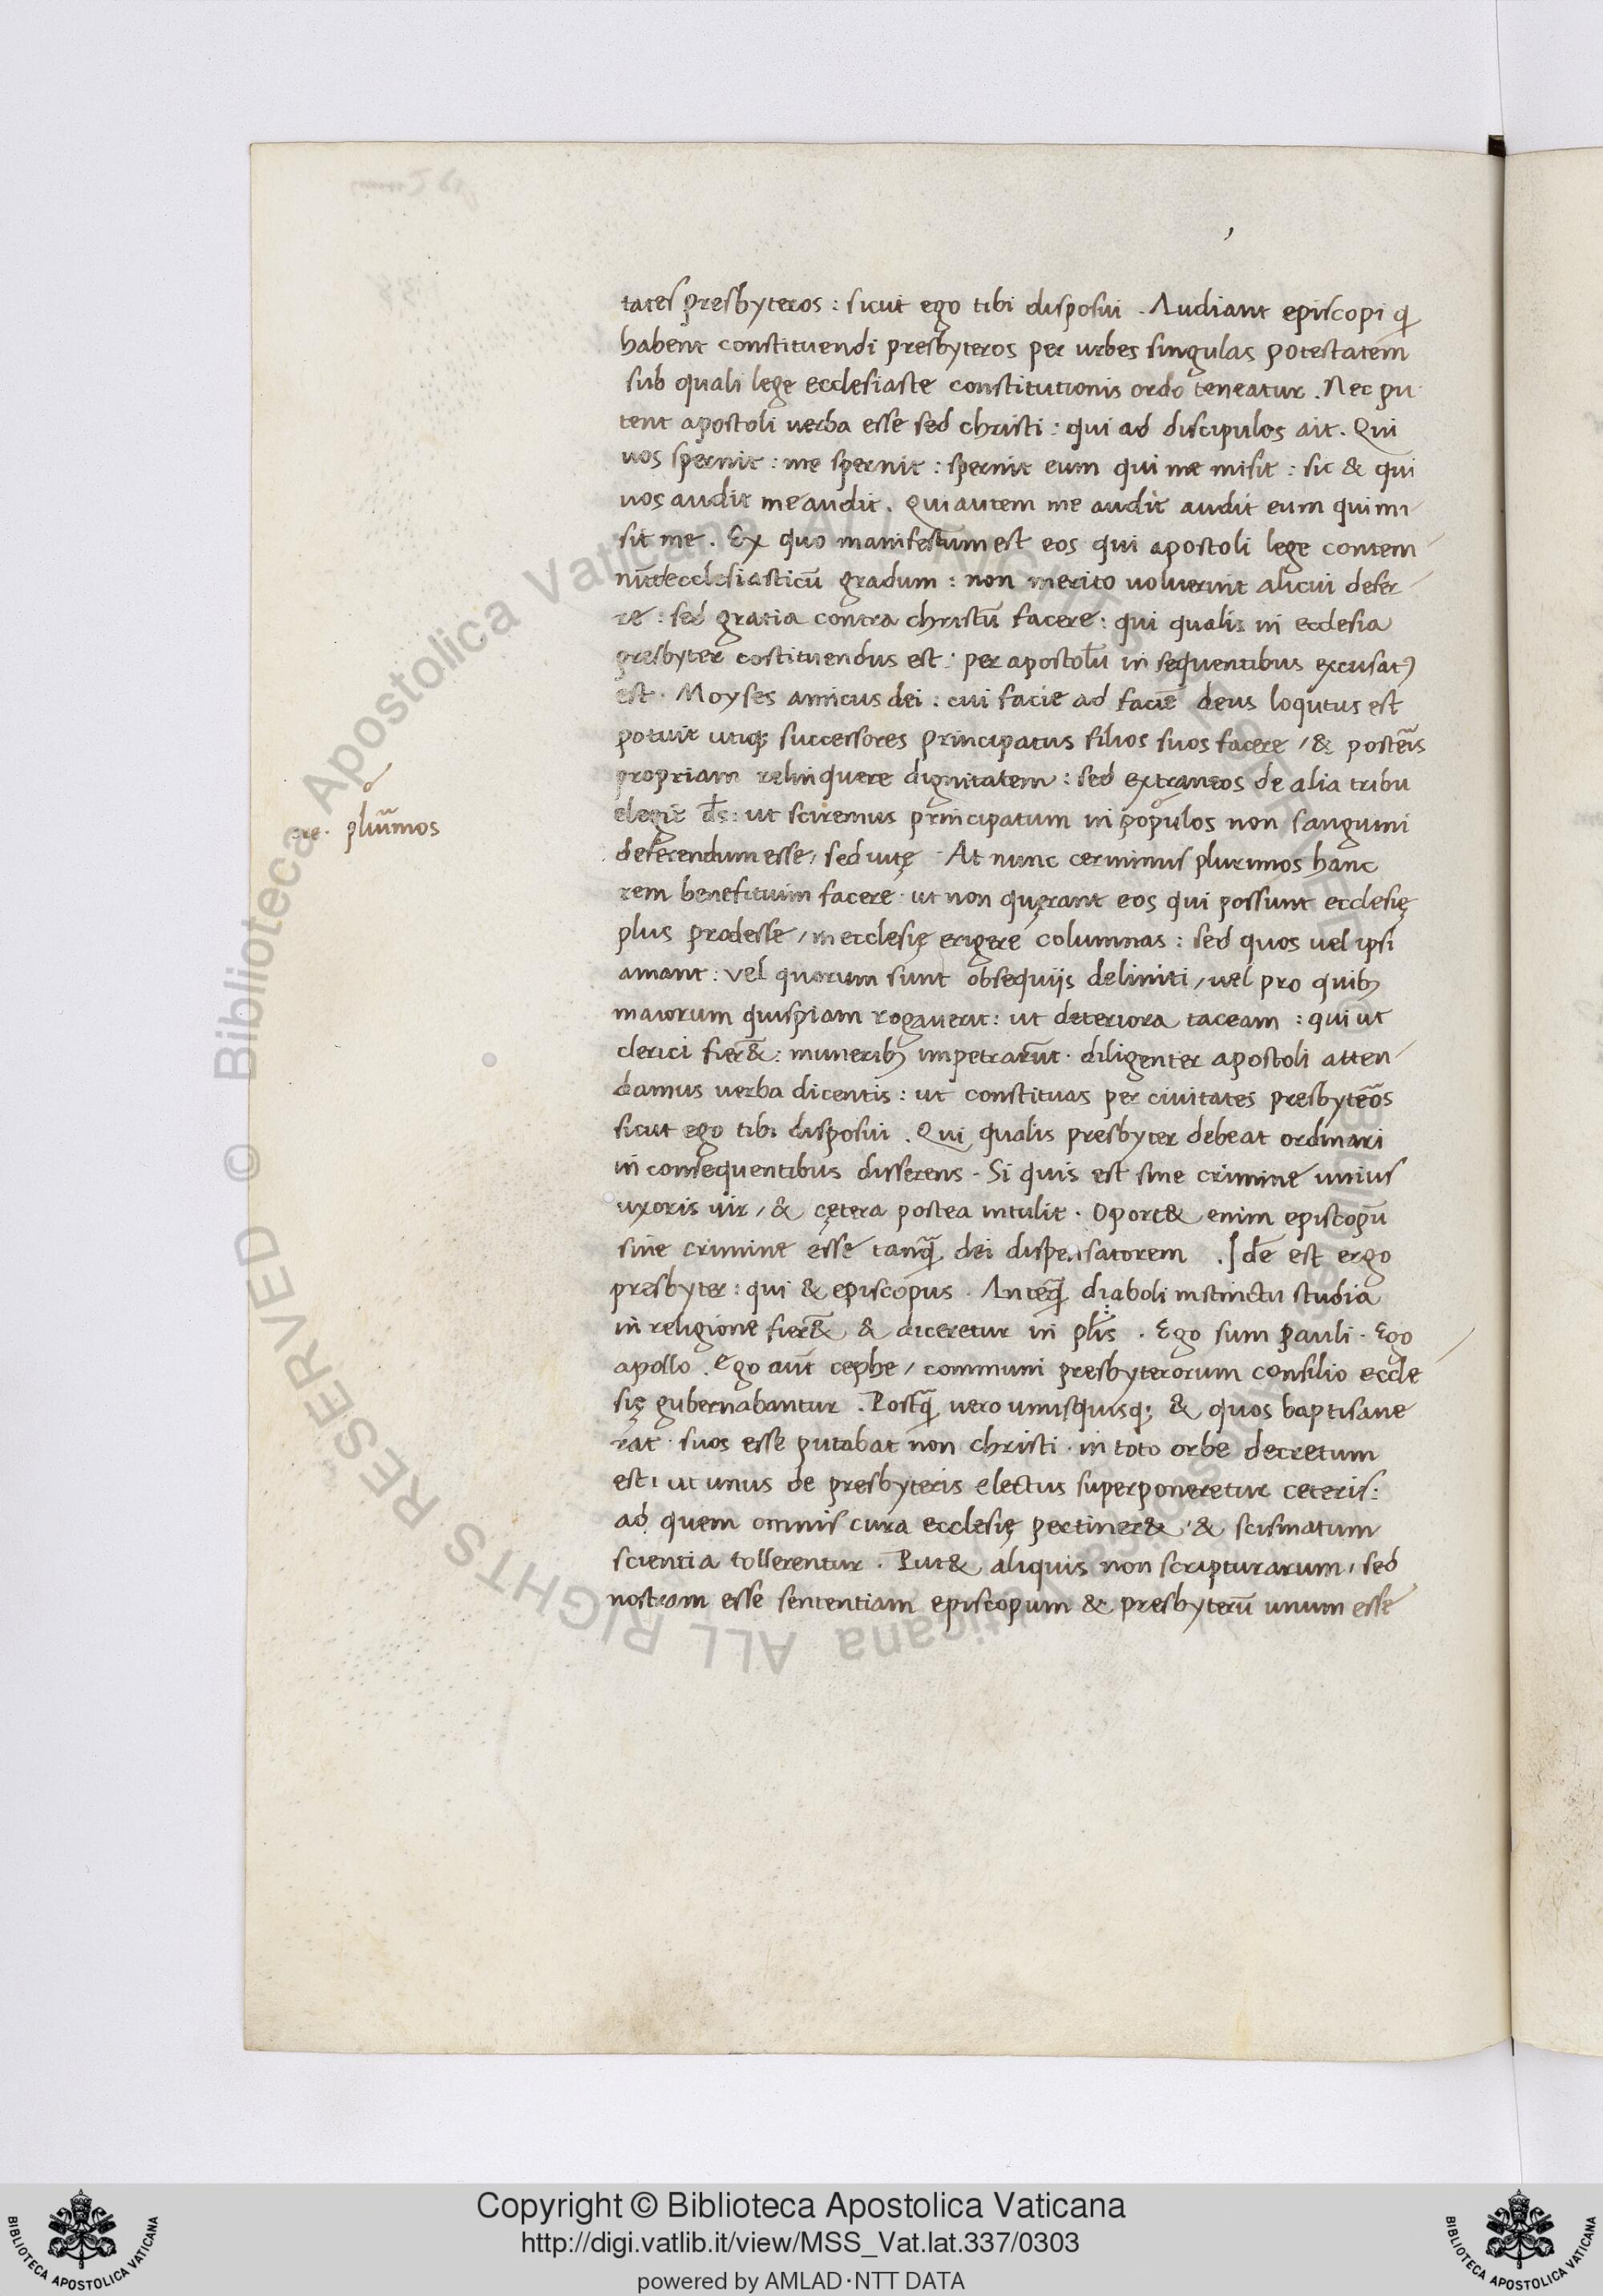 tates presbyteros : sicut ego tibi disposui . Audiant episcopi q̄
habent constituendi presbyteros per urbes singulas potestatem
sub quali lege ecclesiaste constitutionis ordo teneatur . Nec pu
tent apostoli uerba esse sed christi : qui ad discipulos ait . Qui
uos spernit : me spernit : spernit eum qui me misit : sic & qui
uos audit me audit . Qui autem me audit audit eum qui mi-
sit me . Ex quo manifestum est eos qui apostoli lege contem-
nūt ecclesiasticū gradum : non merito uoluerint alicui defer-
re : sed gratia contra christū facere : qui qualis in ecclesia
presbyter costituendus est : per apostolū in sequentibus excusat᾽
est . Moyses amicus dei : cui facie ad faciē deus loqutus est
potuit utiq; successores principatus filios suos facere / & postēis
propriam relinquere dignitatem : sed extraneos de alia tribu
elegit d̄s : ut sciremus principatum in populos non sanguini
deferendum esse / sed uitę . At nunc cernimus plurimos hanc
rem benefitium facere . ut non quęrant eos qui possunt ecclesię
plus prodesse / in ecclesię erigere columnas : sed quos uel ipsi
amant : vel quorum sunt obsequijs deliniti / uel pro quib;
maiorum quispiam rogauerit : ut deteriora taceam : qui ut
clerici fier̄& : munerib; impetrarūt . diligenter apostoli atten-
damus uerba dicentis : ut constituas per ciuitates presbyterōs
sicut ego tibi disposui . Qui qualis presbyter debeat ordinari
in consequentibus disserens . Si quis est sine crimine unius
uxoris uir / & cętera postea intulit . Oport& enim episcopū
sine crimine esse tanq̄ dei dispensatorem . Idē est ergo
presbyter : qui & episcopus . Anteq̄ diaboli instinctu studia
in religione fier̄& & diceretur in pl̄is . Ego sum pauli . Ego
apollo . Ego aūt cephe / communi presbyterorum consilio eccle-
się gubernabantur . Postq̄ uero unusquisq; & quos baptisaue
rat . suos esse putabat non christi . in toto orbe decretum
est . ut unus de presbyteris electus superponeretur ceteris :
ad quem omnis cura ecclesię pertiner& / & scismatum
scientia tollerentur . Put& aliquis non scripturarum / sed
nostram esse sententiam episcopum & presbyterū unum esse
plūimos
© Biblioteca Apostolica Vaticana ALL RIGHTS RESERVED
Copyright © Biblioteca Apostolica Vaticana
http://digi.vatlib.it/view/MSS_Vat.lat.337/0303
powered by AMLAD·NTT DATA
BIBLIOTECA APOSTOLICA VATICANA
BIBLIOTECA APOSTOLICA VATICANA